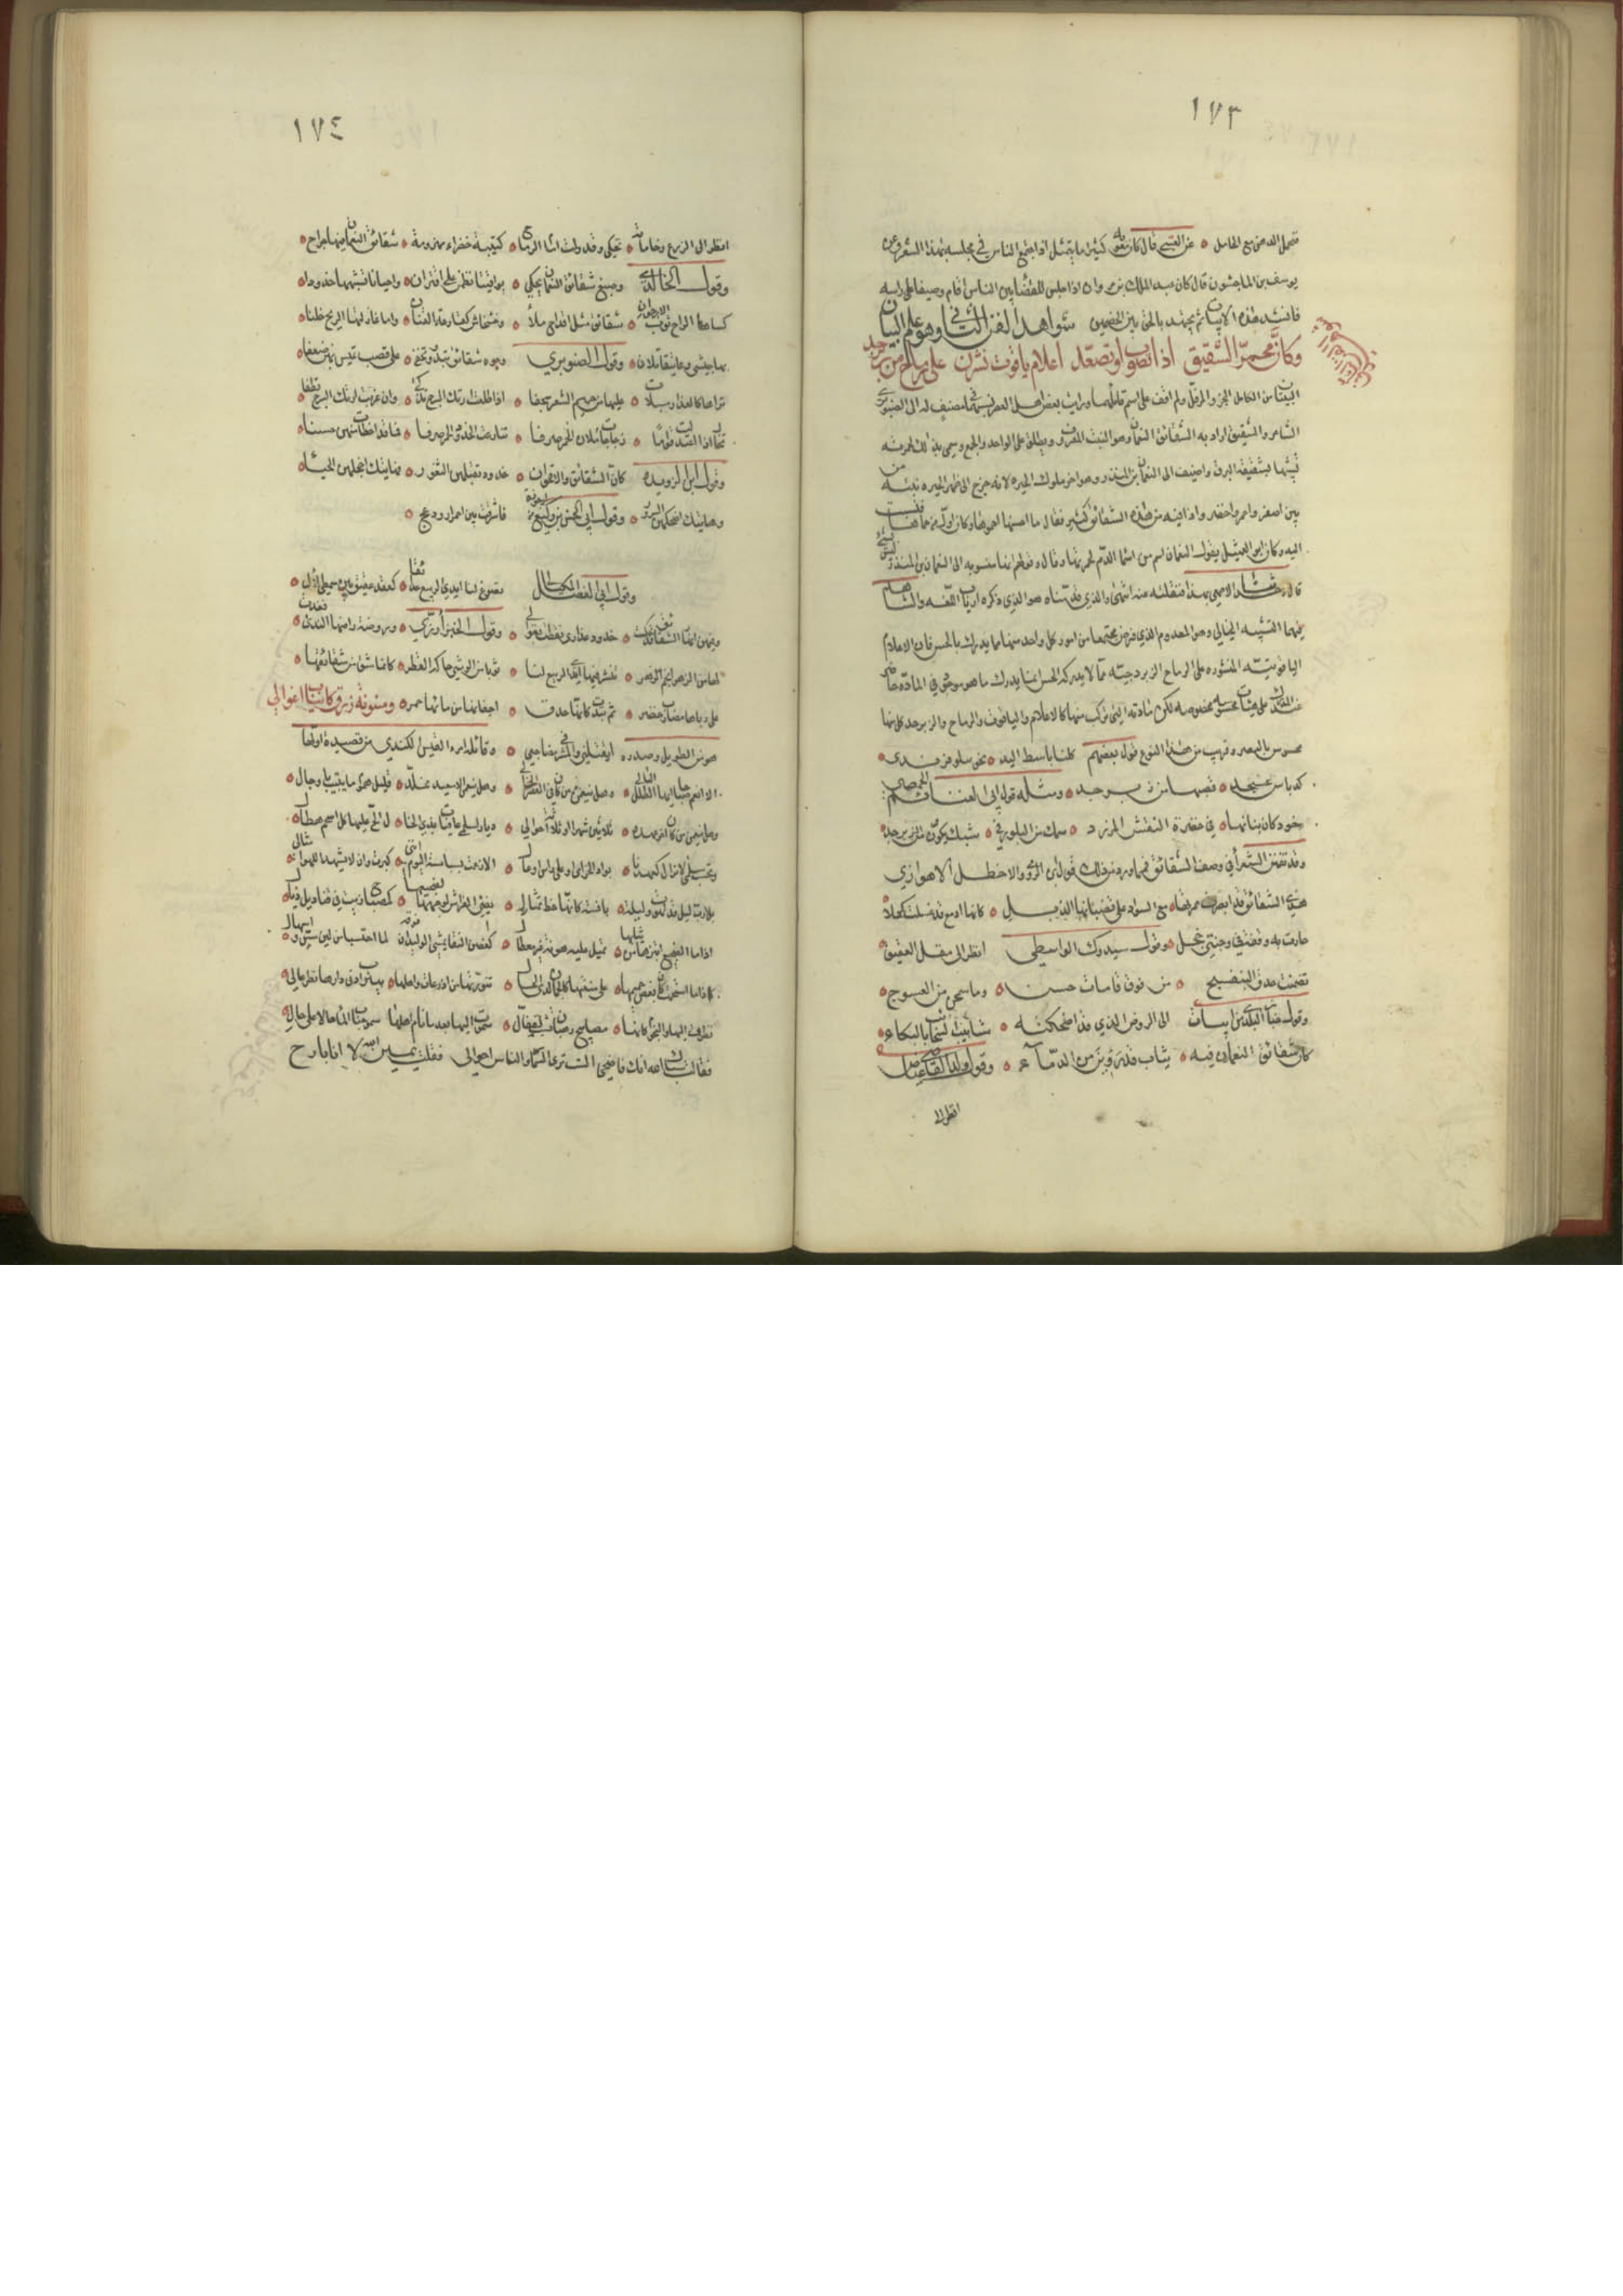 ١٧٣
فيحمل الدهر مع الحامل ه عن القتبي قال كان معوية كثيرا ما يتمثل اذا اجتمع الناس في مجلسه بهذا الشعر وعن
يوسف بن الماجشون قال كان عبد الملك بن مروان اذا جلس للقضا بين الناس اقام وصيفا على راسه
فانشد هذه الابيات ثم يجتهد بالحق بين الخصمين شواهد الفن الثاني وهو علم البيان
وكأنّ محمرّ الشقيق اذا تصوّب او تصعّد اعلام ياقوت نشرن على رماح من زبرجد
البيتان من الكامل المجزو المرفل ولم اقف على اسم قائلهما ورايت بعض اهل العصر نسبهما في مصنف له الى الصنوبري
الشاعر والشقيق اراد به الشقائق النعمان وهو النبت المعروف ويطلق على الواحد والجمع وسمي بذلك لحمرته
تشبيها بشقيقة البرق واضيف الى النعمان بن المنذر وهو اخر ملوك الحيره لانه خرج الى ظهر الحيره نبته من
بين اصفر واحمر واخضر واذا فيه من هذه الشقائق كثير فقال ما احسنها احموها وكان اول من حماها فنسبت
اليه وكان ابو العميثل يقول النعمان اسم من اسما الدم
قال حدثت الاصمعي بهذا فنقله عنه انتهى والذي قدمناه هو الذي ذكره ارباب اللغه والشاهد
فيهما التشبيه الخيالي وهو المعدوم الذي فرض مجتمعا من امور كل واحد منها مما يدرك بالحس فان الاعلام
الياقوتيته المنشوره على الرماح الزبرجديته مما لا يدركه الحس انما يدرك ما هو موجود في المادة حاضر
عند المدرك على هيئات محسوسه مخصوصه لكن مادته التي تركب منها كالاعلام والياقوت والرماح والزبرجد كل منها
محسوس بالبصر وقريب من هذا النوع قول بعضهم كلنا باسط اليد ه نحو نيلوفر ندي ه
كدبابيس عسجد ه قضبها من زبرجد ه ومثله قول ابي الغنائم الحمصي
خود كان بنانها ه في خضرة النقش المزرد ه سمك من البلور في ه شبك تكون من زبرجد ه
وقد تفنن الشعرا في وصف الشقائق فمما ورد من ذلك قول ابن الرومي والاخطل الاهوازي
هذي الشقائق قد ابصرت حمرتها ه مع السواد على قضبانها الذبل ه كانها ادمع قد غسلت كحلا ه
جادت به وقفة في وجنتي خجل ه وقول سيدوك الواسطي انظر الى مقل العقيق ه
تضمنت حدق السبج ه من فوق قامات حسن ه وما سمجن من العسوج ه
وقول الخباز البلدي من ابيات الى الروض الذي قد اضحكته ه شآبيب السحائب بالبكاء ه
كان شقائق النعمان فيه ه ثياب قد روين من الدماء ه وقول القاضي عياض
انظر الى
١٧٤
انظر الى الزرع وخاماته ه تحكي وقد ولت امام الرياح ه كتيبة خضراء مهزومة ه شقائق النعمان فيها جراح ه
وقول الخالدي وصبغ شقائق النعمان يحكي ه يواقيتا نظمن على اقتران ه واحيانا نشبهها خدودا ه
كساها الراح ثوب الارجوان ه شقائق مثل اقداح ملاء ه وخشخاش كفارغة القنان ه ولما غازلتها الريح خلنا ه
بها جيشي وغا يتقاتلان ه وقول الصنوبري وجوه شقائق تبدو وتخفى ه على قضب تميس بهن ضعفا ه
تراها كالعذارى مسبلات ه عليها من جميم الشعر سجفا ه اذا طلعت ارتك السرج تذكى ه وان غربت ارتك السرج تطفا ه
تخال اذا هي اعتدلت قواما ه زجاجات ملئن الخمر صرفا ه تنازعت الخدود الحمر صرفا ه فما قد اخطات منهن حسنا ه
وقول ابن الرويده كان الشقائق والاقحوان ه خدود تقبلهن الثغور ه فهاتيك اخجلهن الحيا ه
وهاتيك اضحكهن السرور ه وقول ابي الحسن بن وكيع
وقول ابي الفضل الميكالي تصوغ لنا ايدي الربيع حدائقا ه كعقد عقيق بين سمط لآل ه
وفيهن انوار الشقائق قد حكت ه خدود عذارى نقطت بغوالي ه وقول الخبزارزي ه وروضة راضها الندى فغدت ه
لها من الزهر انجم الزهر ه تنشر فيها ايدي الربيع لنا ه ثوبا من الوشي حاكه القطر ه كانما شق من شقائقها ه
على رباها مطارف خضر ه ثم تبدت كانها حدق ه اجفانها من دمائها حمر ه ومسنونة زرق كانياب اغوال
هو من الطويل وصدره ايقتلني والمشرفي مضاجعي ه وقائله امرء القيس الكندي من قصيدة اولها
الا انعم صباحا ايها الطلل البالي ه وهل ينعمن من كان في العصر الخالي ه وهل ينعمن الا سعيد مخلد ه قليل هموم ما يبيت باوجال ه
وهل ينعمن من كان اخر عهده ه ثلاثين شهرا او ثلاثة احوال ه ديار لسلمى عافيات بذي الخال ه الح عليها كل اسحم هطال ه
وتحسب سلمى لا تزال كعهدنا ه بوادي الخزامى او على راس اوعال ه الا زعمت بسباسة اليوم انني ه كبرت وان لا يشهد اللهو امثالي ه
بلى رب يوم قد لهوت وليلة ه بآنسة كانها خط تمثال ه يضيء الفراش وجهها لضجيعها ه كمصباح زيت في قناديل ذبال ه
اذا ما الضجيع ابتزها من ثيابها ه تميل عليه هونة غير معطال ه كحقف النقا يمشي الوليدان فوقه ه لما احتسبا من لين مس وتسهال ه
تنورتها من اذرعات واهلها ه بيثرب ادنى دارها نظر عالي ه
نظرت اليها والنجوم كانها ه مصابيح رهبان تشب لقفال ه سموت اليها بعد ما نام اهلها سمو حباب الماء حالا على حال ه
فقالت سباك الله انك فاضحي الست ترى السمار والناس احوالي فقلت يمين الله لا انا بارح